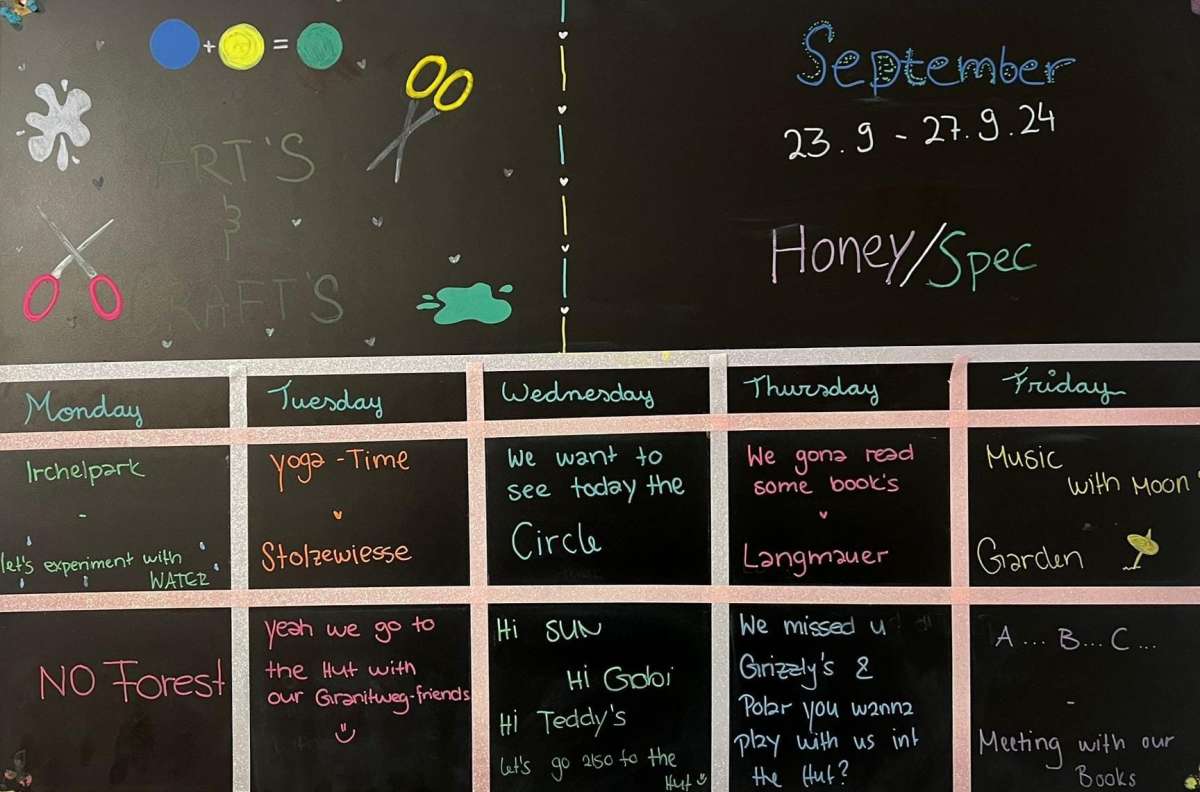 + =
ART'S
&
CRAFT'S
September
23.9 - 27.9.24
Honey/Spec
Monday
Tuesday
Wednesday
Thursday
Friday
Irchelpark
-
let's experiment with
WATER
Yoga-Time
Stolzewiesse
We want to
see today the
Circle
We gona read
some book's
Langmauer
Music
with Moon
Garden
NO Forest
yeah we go to
the Hut with
our Granitweg-friends
Hi SUN
Hi Gobi
Hi Teddy's
let's go also to the
Hut
We missed u
Grizzly's &
Polar you wanna
play with us int
the Hut?
A... B... C...
-
Meeting with our
Books